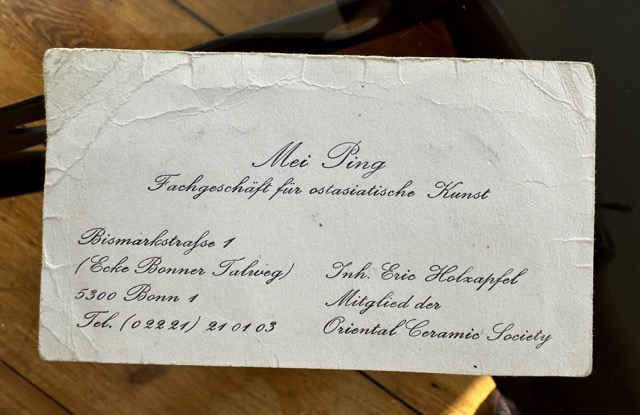 Mei Ping
Fachgeschäft für ostasiatische Kunst
Bismarkstraße 1
(Ecke Bonner Talweg)
5300 Bonn 1
Tel. (0 22 21) 21 01 03
Inh. Eric Holzapfel
Mitglied der
Oriental Ceramic Society